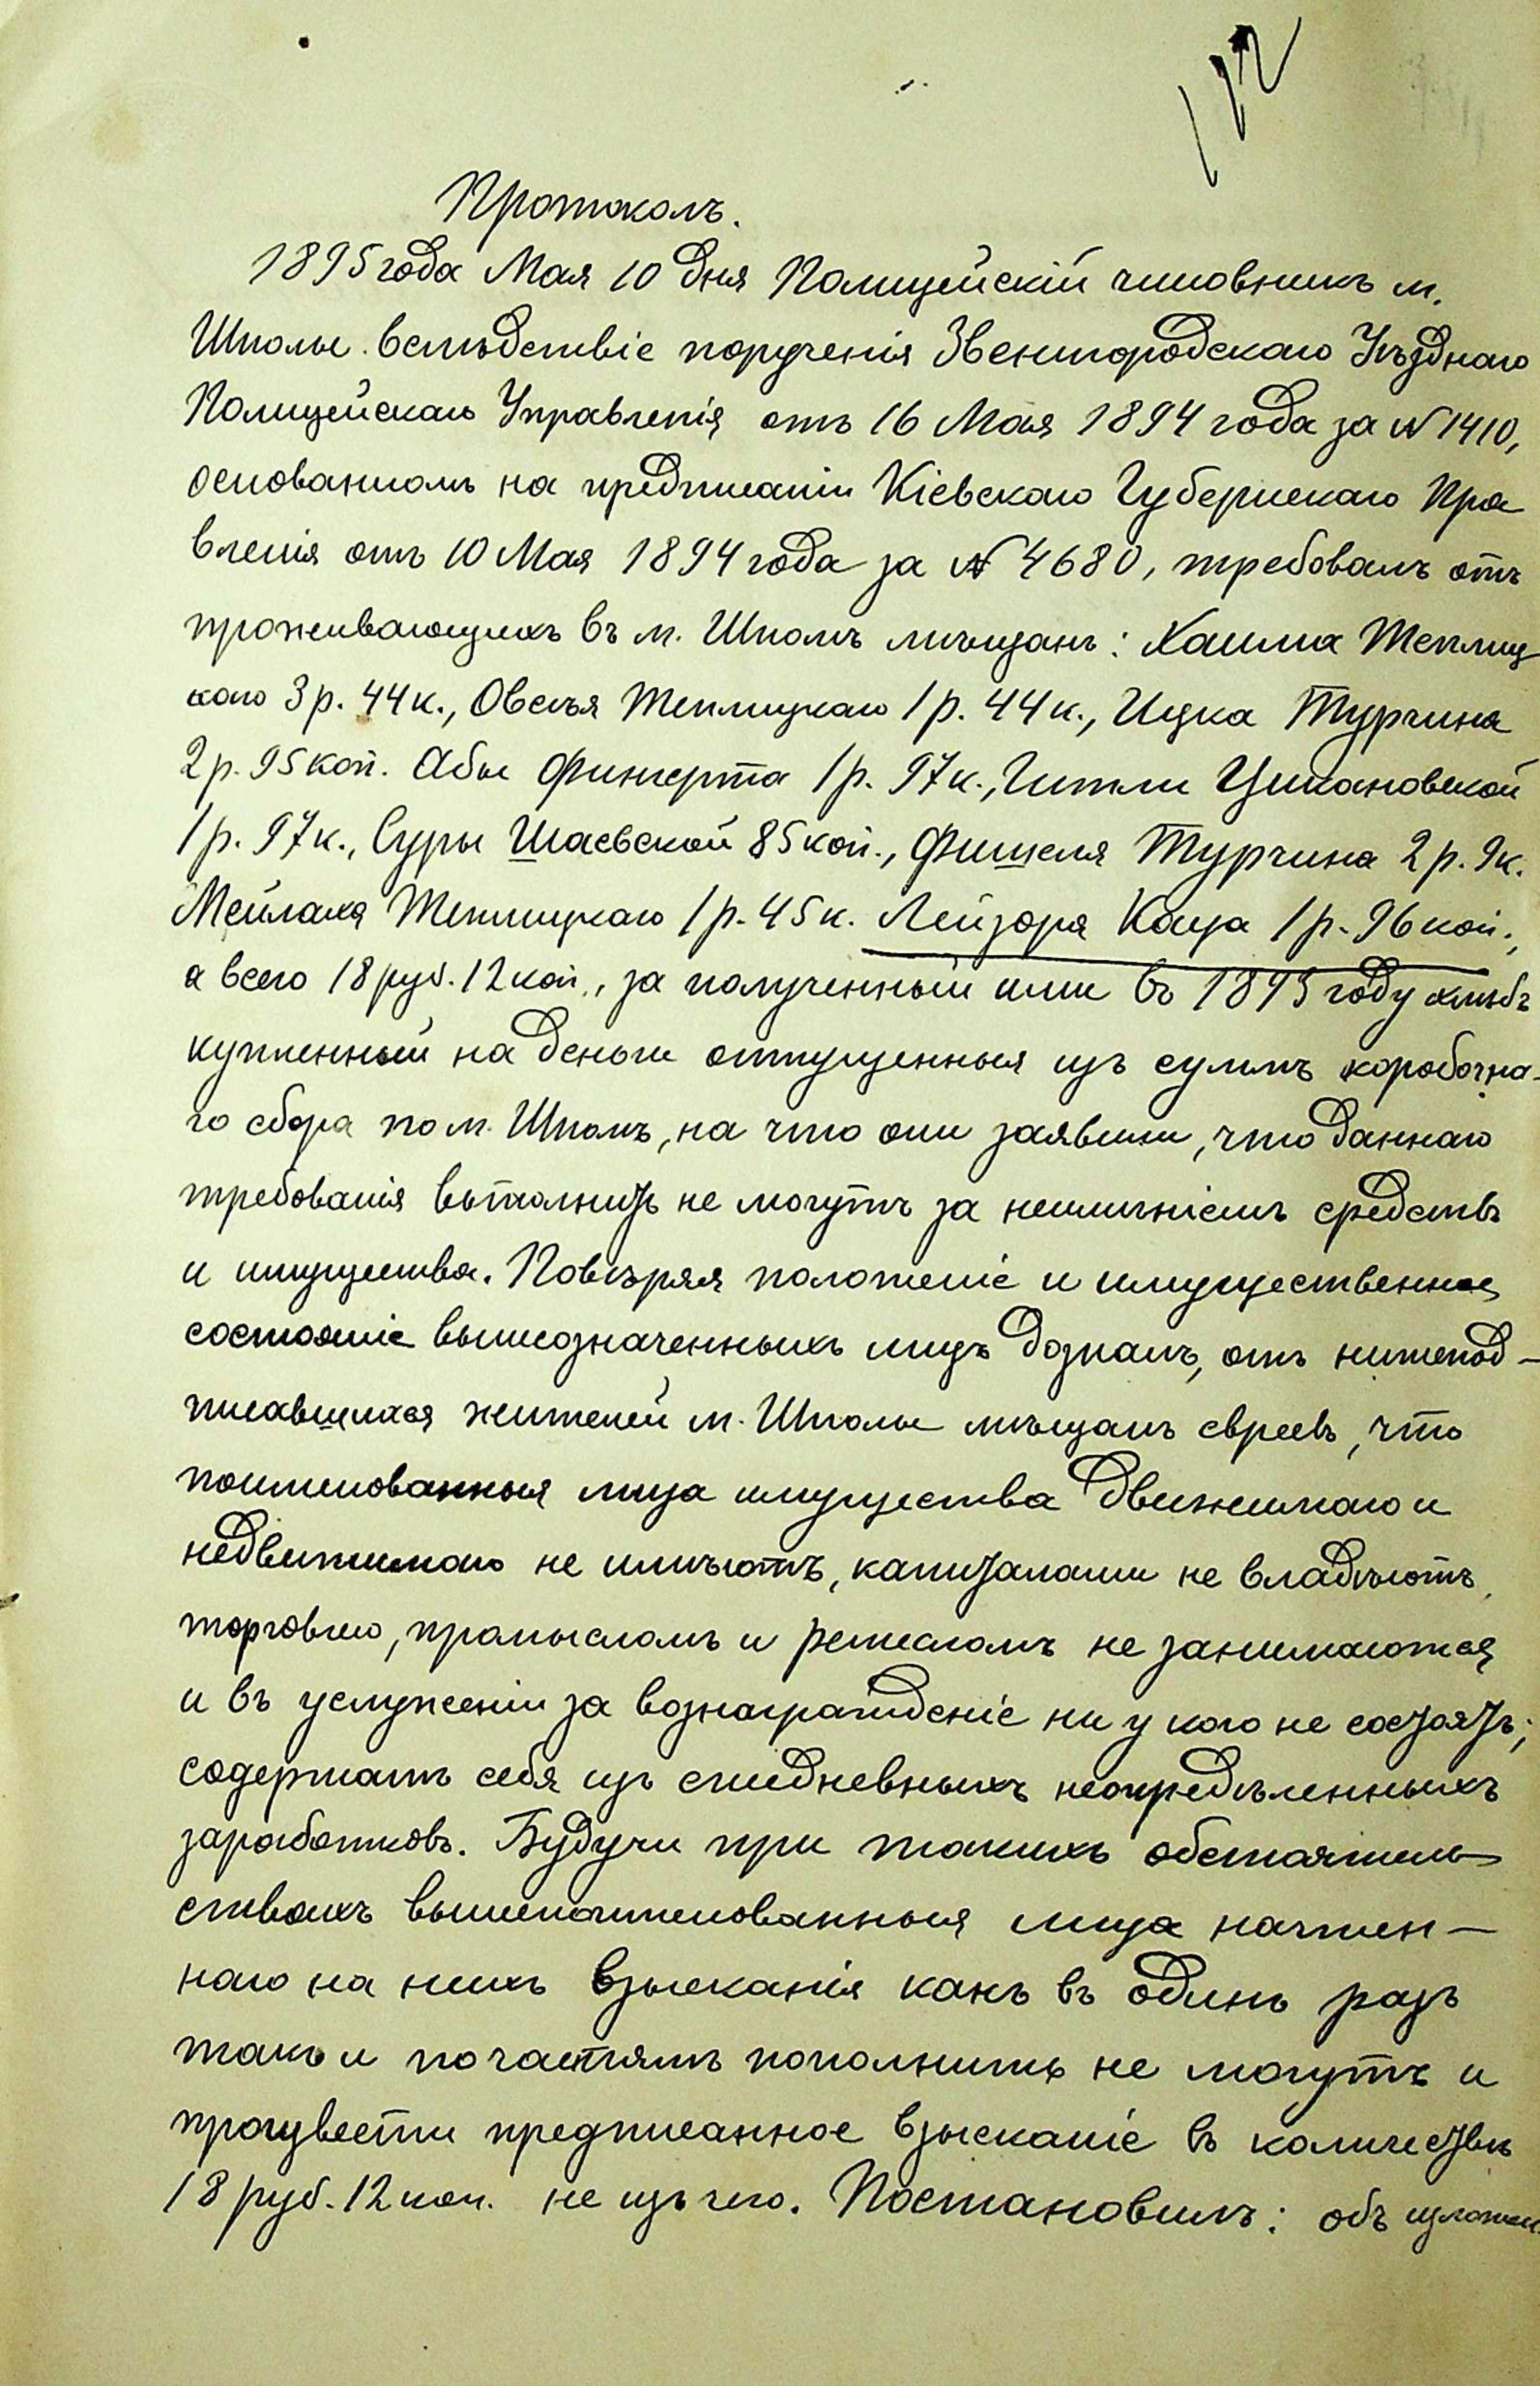 112
Протоколъ.
1895 года Мая 10 дня Полицейскій чиновникъ м.
Шполы вслѣдствіе порученія Звенигородскаго Уѣзднаго
Полицейскаго Управленія отъ 16 Мая 1894 года за № 1410,
основанномъ на предписаніи Кіевскаго Губернскаго Пра
вленія отъ 10 Мая 1894 года за № 4680, требовалъ отъ
проживающихъ въ м. Шполѣ мѣщанъ: Хаима Теплиц
каго 3 р. 44 к., Овсѣя Теплицкаго 1 р. 44 к., Ицка Турчина
2 р. 95 коп. Абы Фингерта 1 р. 97 к., Гитли Цикановской
1 р. 97 к., Суры Шаевской 85 коп., Фишеля Турчина 2 р. 9 к.
Мейлаха Теплицкаго 1 р. 45 к. Лейзора Каца 1 р. 96 коп.,
а всего 18 руб. 12 коп., за полученный ими въ году хлѣбъ
купленный на деньги отпущенныя изъ суммъ коробочна-
го сбора по м. Шполѣ, на что они заявили, что даннаго
требованія выполнить не могутъ за неимѣніемъ средствъ
и имущества. Повѣряя положеніе и имущественное
состояніе вышеозначенныхъ лицъ дозналъ, отъ нижепод-
писавшихся жителей м. Шполы мѣщанъ евреевъ, что
поименованныя лица имущества движимаго и
недвижимаго не имѣютъ, капиталами не владѣютъ,
торговлею, промысломъ и ремесломъ не занимаются
и въ услуженіи за вознагражденіе ни у кого не состоятъ;
содержатъ себя изъ ежедневныхъ неопредѣленныхъ
заработковъ. Будучи при такихъ обстоятель
ствахъ вышепоименованныя лица начтен-
наго на нихъ взысканія какъ въ одинъ разъ
такъ и по частямъ пополнить не могутъ и
произвести предписанное взысканіе въ количествѣ
18 руб. 12 коп. не изъ чего. Постановилъ: объ изложен